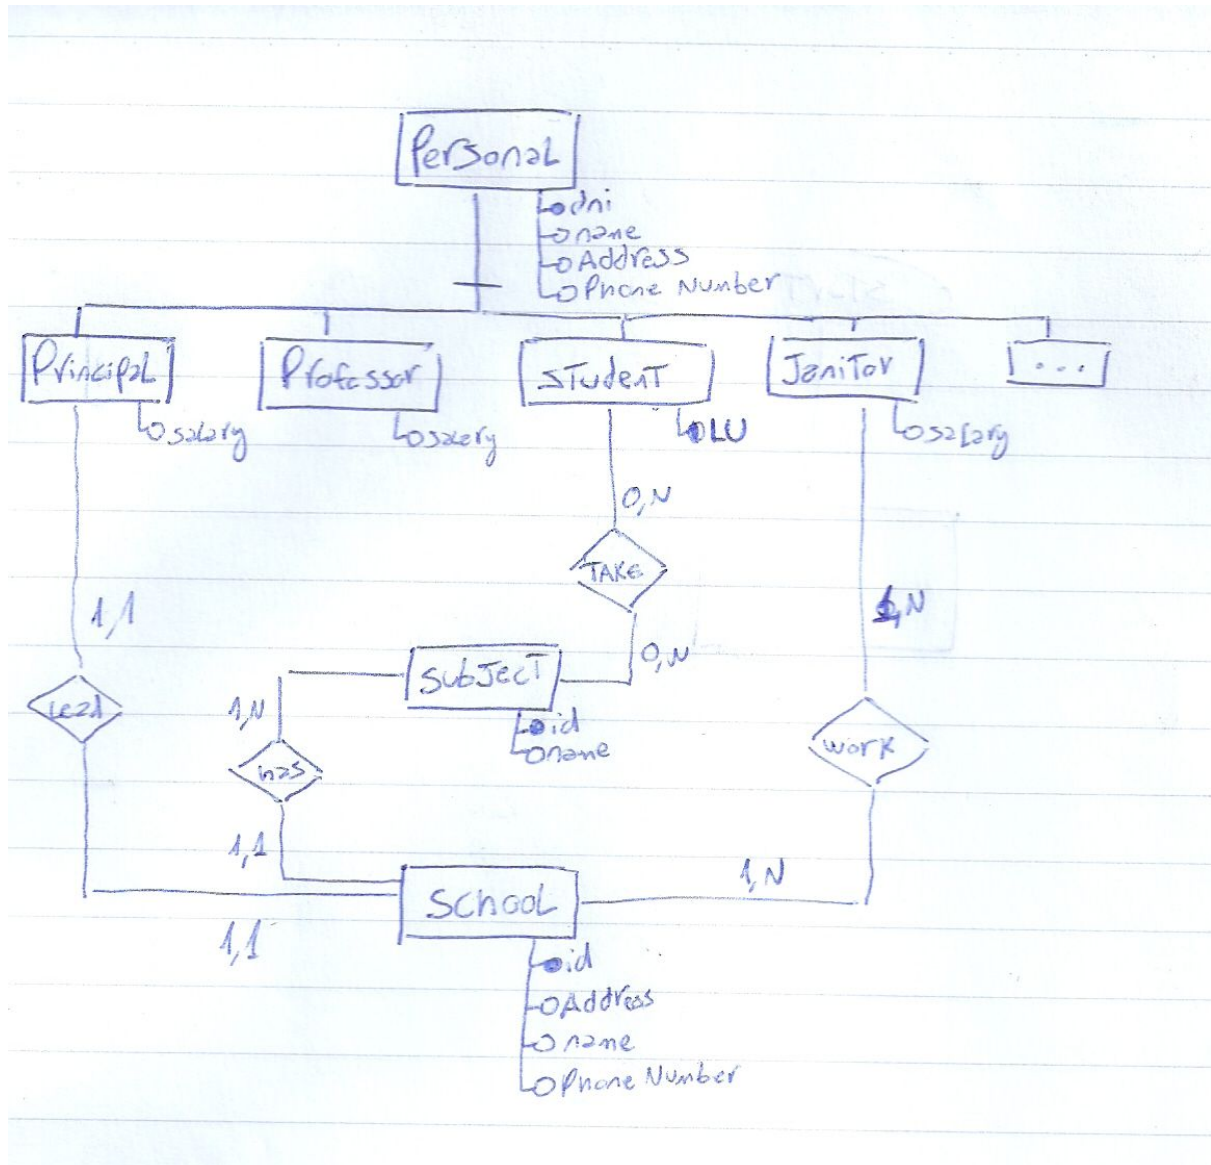 Personal
dni
name
Address
Phone Number
Principal
Professor
Student
Janitor
...
salary
salary
LU
salary
0,N
TAKE
1,1
1,N
0,N
Subject
lead
1,N
id
name
has
work
1,1
1,N
School
1,1
id
Address
name
Phone Number